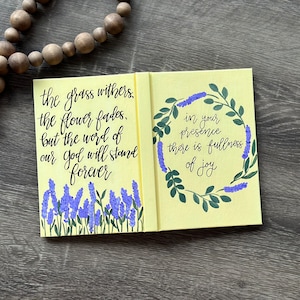 the grass withers,
the flower fades,
but the word of
our God will stand
forever
in your
presence
there is fullness
of joy